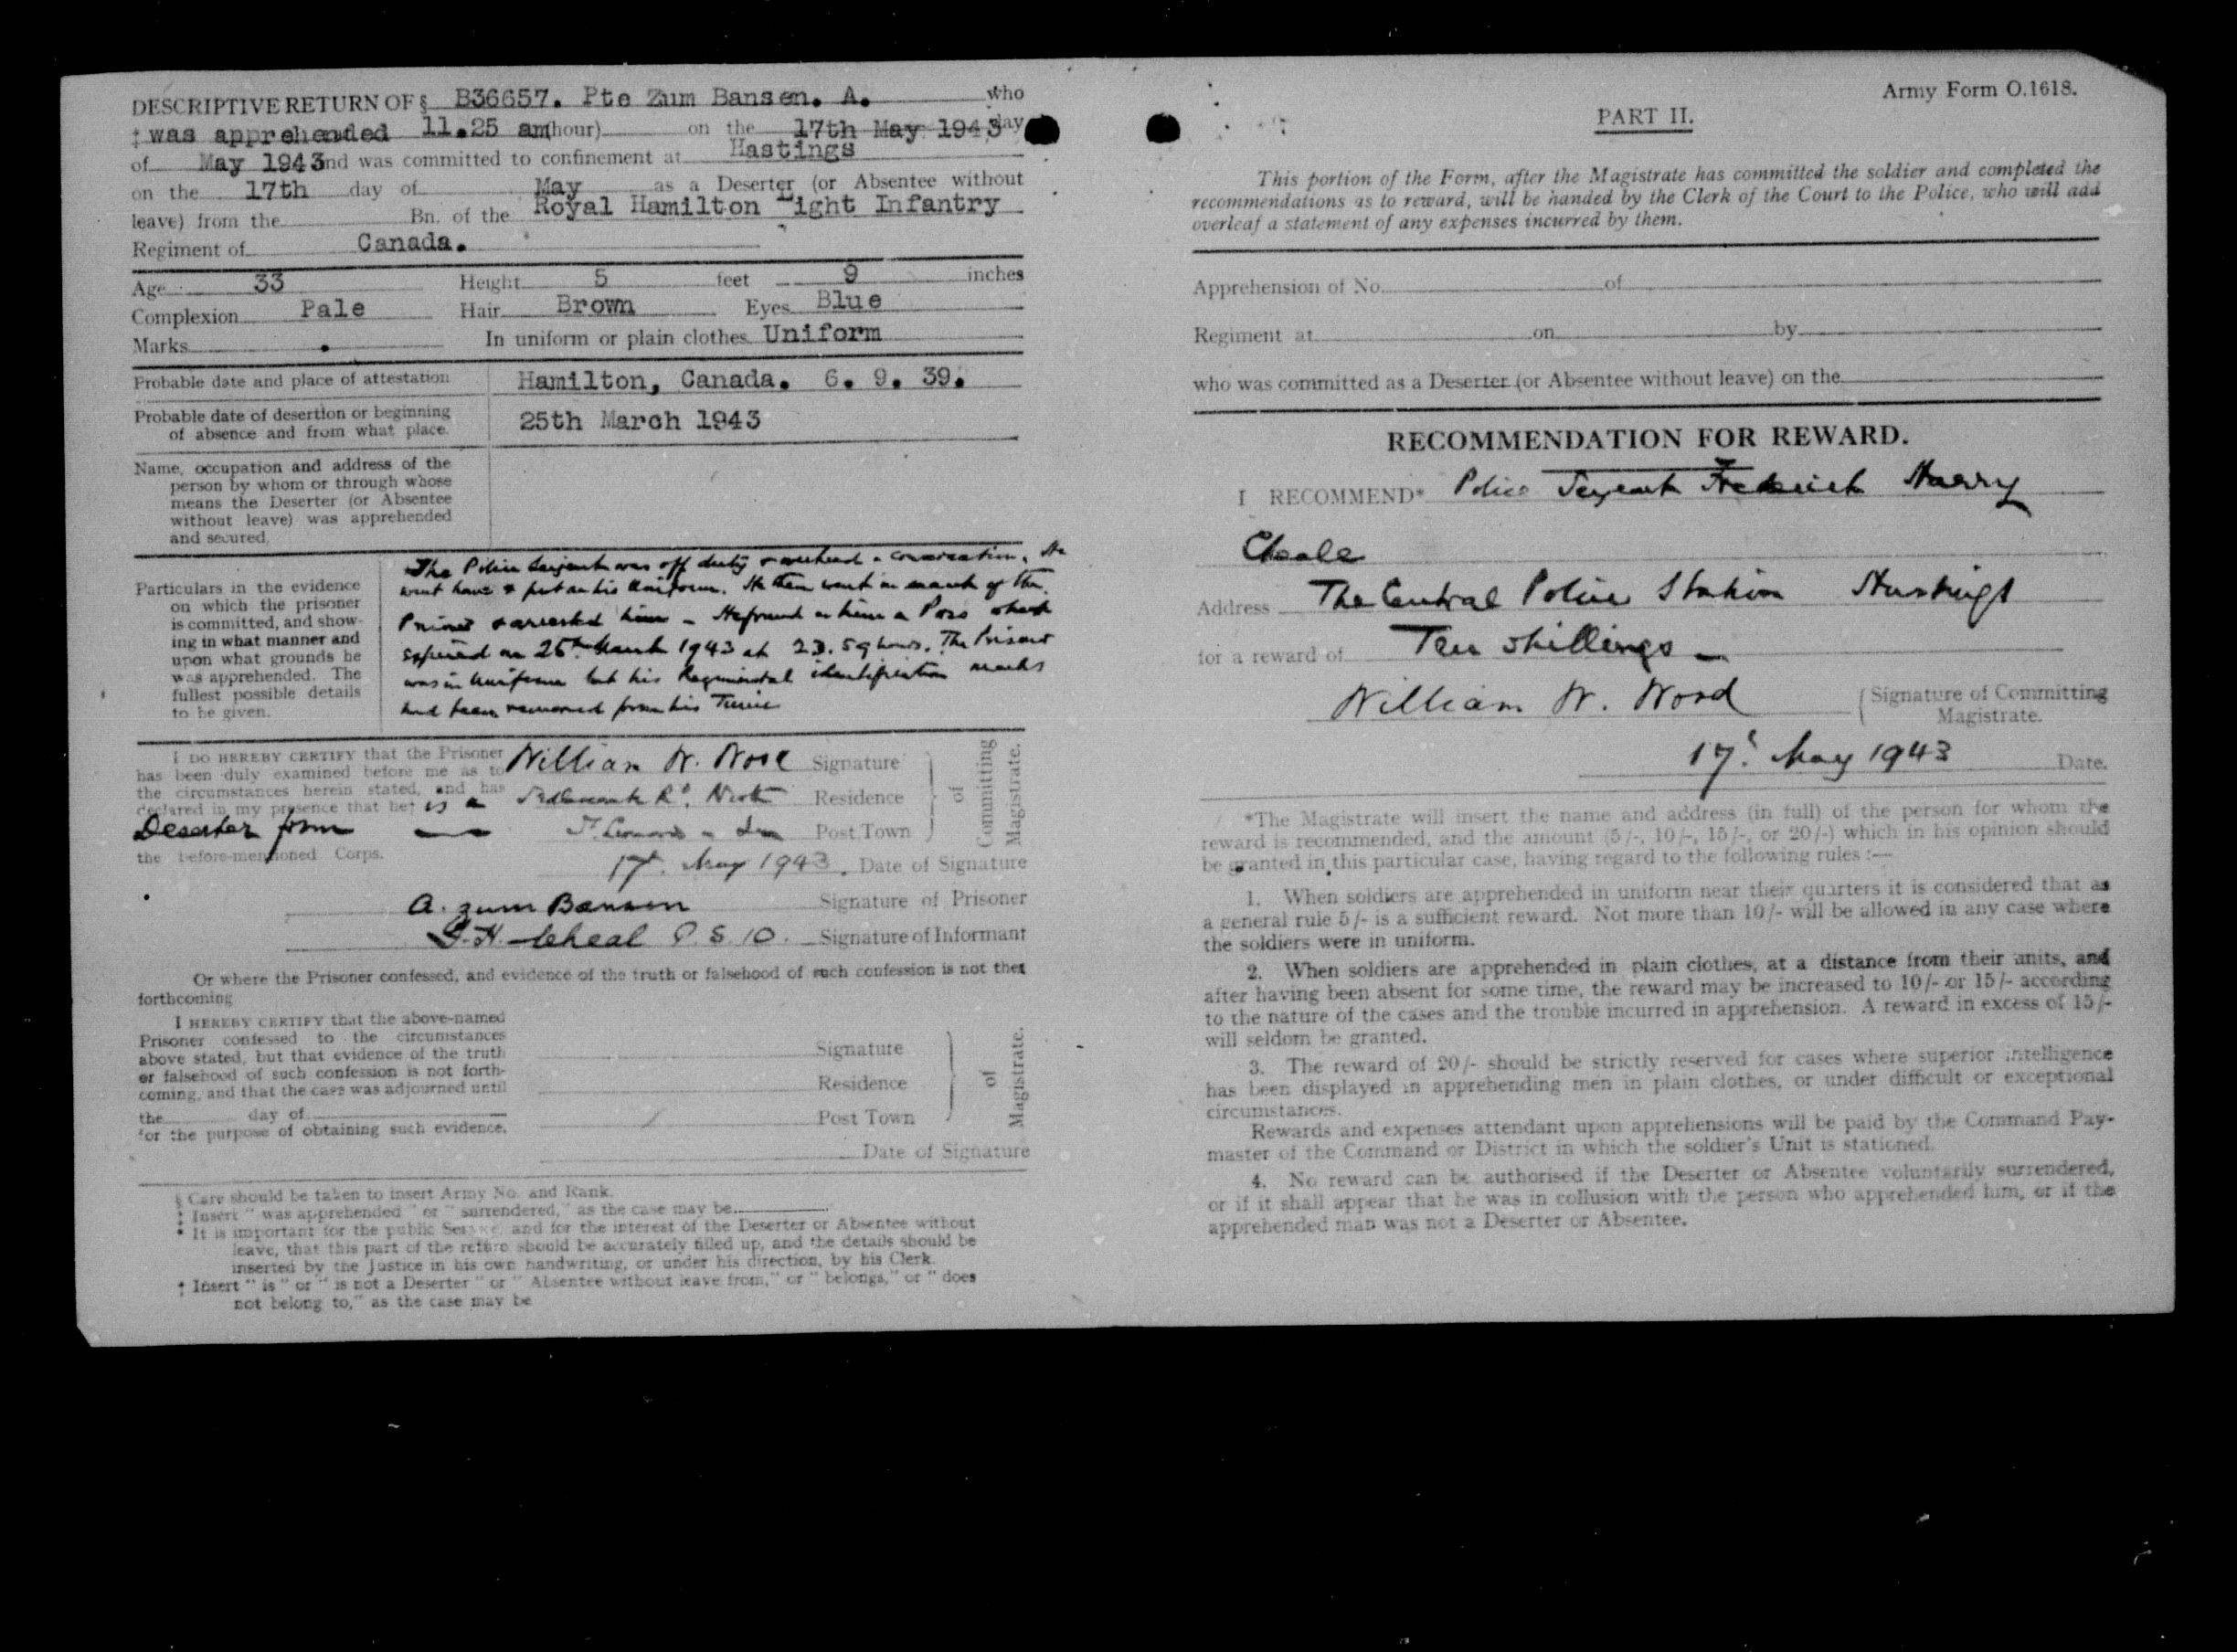 DESCRIPTIVE RETURN OF § B36657. Pte Zum Bansen. A. who
‡ was apprehended 11.25 am (hour) on the 17th May 1943 day
of May 1943 and was committed to confinement at Hastings
on the 17th day of May as a Deserter (or Absentee without
leave) from the Bn. of the Royal Hamilton Light Infantry
Regiment of Canada.
Age 33 Height 5 feet 9 inches
Complexion Pale Hair Brown Eyes Blue
Marks . In uniform or plain clothes Uniform
Probable date and place of attestation Hamilton, Canada. 6. 9. 39.
Probable date of desertion or beginning
of absence and from what place. 25th March 1943
Name, occupation and address of the
person by whom or through whose
means the Deserter (or Absentee
without leave) was apprehended
and secured.
Particulars in the evidence
on which the prisoner
is committed, and show-
ing in what manner and
upon what grounds he
was apprehended. The
fullest possible details
to be given.
The Police Sergeant was off duty & overheard a conversation. He
went home & put on his Uniform. He then went in search of the
Prisoner & arrested him - He found on him a Pass which
expired on 25th March 1943 at 23.59 hours. The Prisoner
was in Uniform but his Regimental identification marks
had been removed from his Tunic
I DO HEREBY CERTIFY that the Prisoner
has been duly examined before me as to
the circumstances herein stated, and has
declared in my presence that he† is a
Deserter from
the before-mentioned Corps.
William W. Wood Signature
Rd. North Residence
St. Leonards on Sea Post Town
of Committing Magistrate.
17th May 1943. Date of Signature
A. zum Bansen Signature of Prisoner
F. H. Cheal P.S. 10. Signature of Informant
Or where the Prisoner confessed, and evidence of the truth or falsehood of such confession is not then
forthcoming
I HEREBY CERTIFY that the above-named
Prisoner confessed to the circumstances
above stated, but that evidence of the truth
or falsehood of such confession is not forth-
coming, and that the case was adjourned until
the day of
for the purpose of obtaining such evidence.
Signature
Residence
Post Town
of Magistrate.
Date of Signature
§ Care should be taken to insert Army No. and Rank.
‡ Insert "was apprehended" or "surrendered," as the case may be.
* It is important for the public Service, and for the interest of the Deserter or Absentee without
leave, that this part of the return should be accurately filled up, and the details should be
inserted by the Justice in his own handwriting, or under his direction, by his Clerk.
† Insert "is" or "is not a Deserter" or "Absentee without leave from," or "belongs," or "does
not belong to," as the case may be
Army Form O.1618.
PART II.
This portion of the Form, after the Magistrate has committed the soldier and completed the
recommendations as to reward, will be handed by the Clerk of the Court to the Police, who will add
overleaf a statement of any expenses incurred by them.
Apprehension of No. of
Regiment at on by
who was committed as a Deserter (or Absentee without leave) on the
RECOMMENDATION FOR REWARD.
I RECOMMEND* Police Sergeant Frederick Harry
Cheale
Address The Central Police Station Hastings
for a reward of Ten shillings
William W. Wood Signature of Committing
Magistrate.
17th May 1943 Date.
*The Magistrate will insert the name and address (in full) of the person for whom the
reward is recommended, and the amount (5/-, 10/-, 15/-, or 20/-) which in his opinion should
be granted in this particular case, having regard to the following rules :—
1. When soldiers are apprehended in uniform near their quarters it is considered that as
a general rule 5/- is a sufficient reward. Not more than 10/- will be allowed in any case where
the soldiers were in uniform.
2. When soldiers are apprehended in plain clothes, at a distance from their units, and
after having been absent for some time, the reward may be increased to 10/- or 15/- according
to the nature of the cases and the trouble incurred in apprehension. A reward in excess of 15/-
will seldom be granted.
3. The reward of 20/- should be strictly reserved for cases where superior intelligence
has been displayed in apprehending men in plain clothes, or under difficult or exceptional
circumstances.
Rewards and expenses attendant upon apprehensions will be paid by the Command Pay-
master of the Command or District in which the soldier's Unit is stationed.
4. No reward can be authorised if the Deserter or Absentee voluntarily surrendered,
or if it shall appear that he was in collusion with the person who apprehended him, or if the
apprehended man was not a Deserter or Absentee.